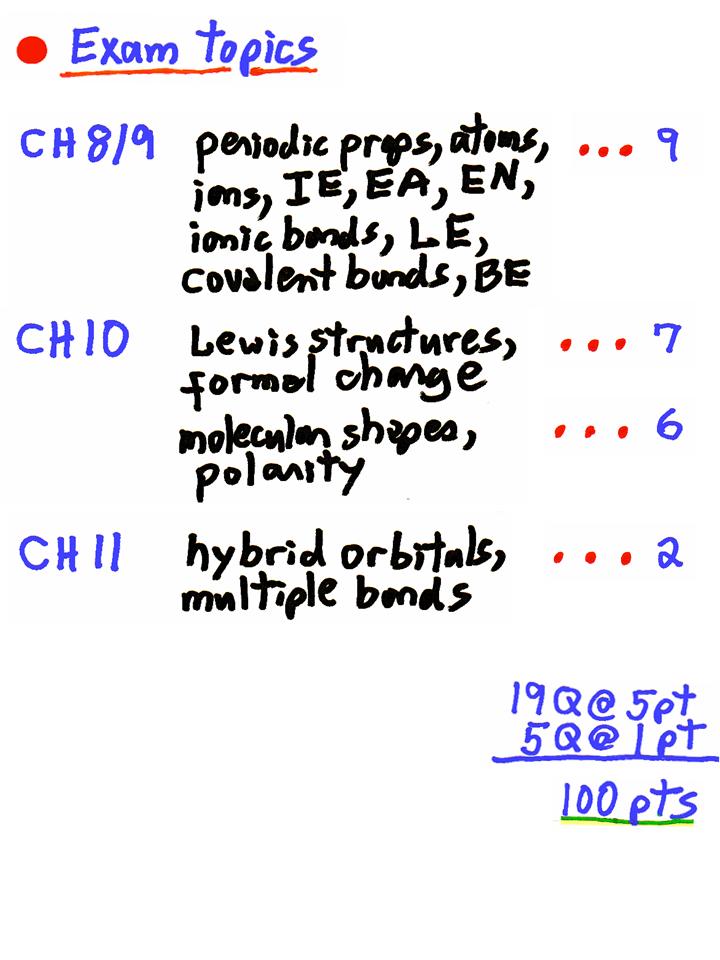 Exam topics
CH 8/9 periodic props, atoms, ... 9
ions, IE, EA, EN,
ionic bonds, LE,
covalent bonds, BE
CH 10 Lewis structures, ... 7
formal charge
molecular shapes, ... 6
polarity
CH 11 hybrid orbitals, ... 2
multiple bonds
19 Q @ 5pt
5 Q @ 1 pt
100 pts